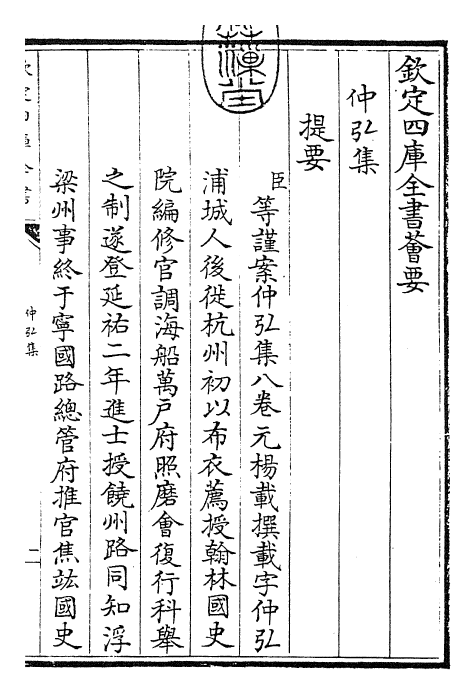 欽定四庫全書薈要
仲弘集
提要
臣等謹案仲弘集八卷元楊載撰載字仲弘
浦城人後徙杭州初以布衣薦授翰林國史
院編修官調海船萬戶府照磨會復行科舉
之制遂登延祐二年進士授饒州路同知浮
梁州事終于寧國路總管府推官焦竑國史
欽定四庫全書
仲弘集
二